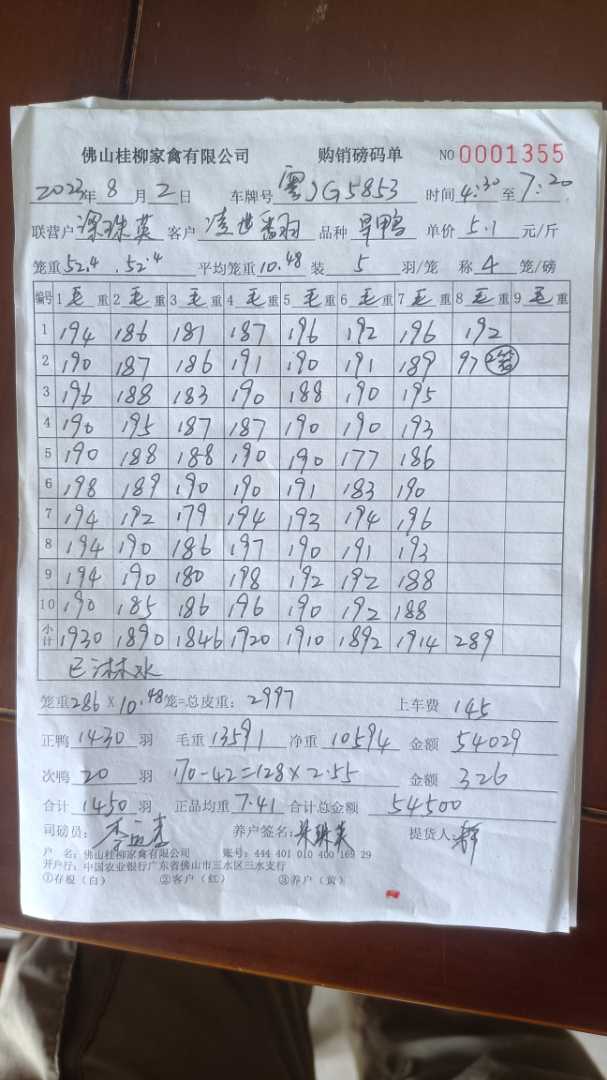 佛山桂柳家禽有限公司 购销磅码单 NO 0001355
2023年 8 月 2 日 车牌号 粤JG5853 时间 4:30 至 7:20
联营户 梁珠英 客户 品种 旱鸭 单价 5.1 元/斤
笼重 52.4 . 52.4 平均笼重 10.48 装 5 羽/笼 称 4 笼/磅
编号 1 毛 重 2 毛 重 3 毛 重 4 毛 重 5 毛 重 6 毛 重 7 毛 重 8 毛 重 9 毛 重
1 194 186 181 187 196 192 196 192
2 190 187 186 191 190 191 189 97 2笼
3 196 188 183 190 188 190 195
4 190 195 187 187 190 190 193
5 190 188 188 190 190 177 186
6 198 189 190 190 191 183 190
7 194 192 179 194 193 194 196
8 194 190 186 197 190 191 193
9 194 190 180 198 192 192 188
10 190 185 186 196 190 192 188
小计 1930 1890 1846 1920 1910 1892 1914 289
已淋水
笼重 286 × 10.48 笼=总皮重: 2997 上车费 145
正鸭 1430 羽 毛重 13591 净重 10594 金额 54029
次鸭 20 羽 170-42=128×2.55 金额 326
合计 1450 羽 正品均重 7.41 合计总金额 54500
司磅员: 养户签名: 梁珠英 提货人:
户 名: 佛山桂柳家禽有限公司 账号: 444 401 010 400 169 29
开户行: 中国农业银行广东省佛山市三水区三水支行
①存根（白） ②客户（红） ③养户（黄）